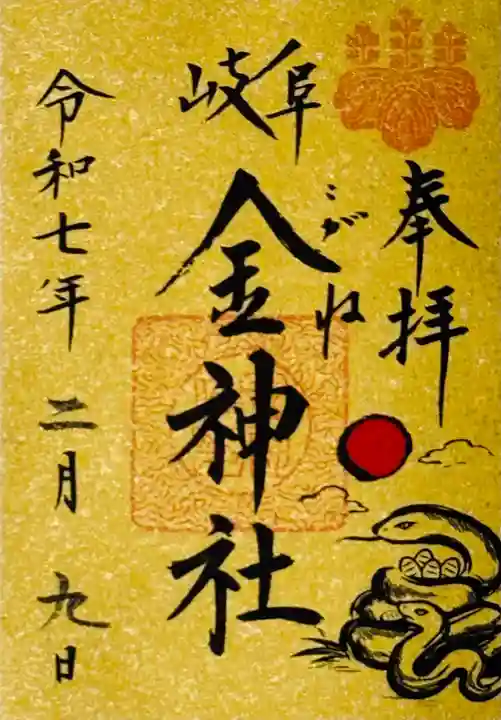 奉拝
岐阜
金神社
こがね
令和七年 二月 九日